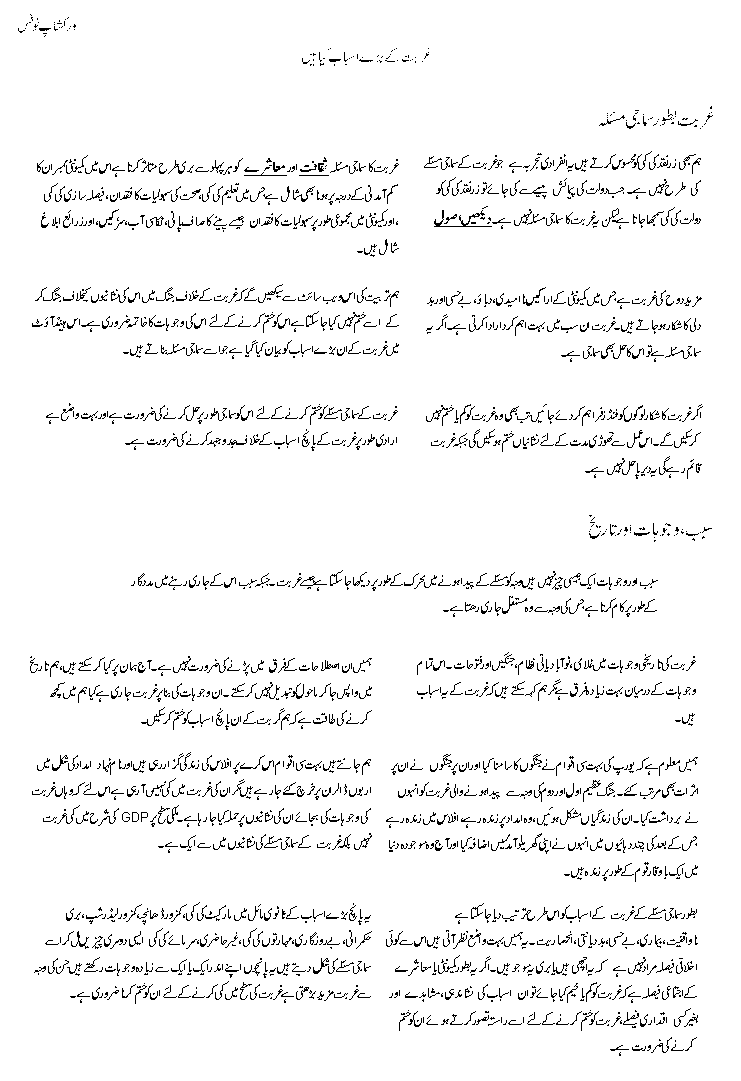 ورکشاپ نوٹس
غربت کے بڑے اسباب کیا ہیں
غربت بطور سماجی مسئلہ
ہم سبھی زر نقد کی کمی کو محسوس کرتے ہیں یہ انفرادی تجربہ ہے جو غربت کے سماجی مسئلے
کی طرح نہیں ہے۔ جب دولت کی پیمائش پیسے سے کی جائے تو زر نقد کی کمی کو
دولت کی کمی سمجھا جاتا ہے لیکن یہ غربت کا سماجی مسئلہ نہیں ہے۔ دیکھیں اصول
غربت کا سماجی مسئلہ ثقافت اور معاشرے کو ہر پہلو سے بری طرح متاثر کرتا ہے اس میں کمیونٹی ممبران کا
کم آمدنی کے درجہ پر ہونا بھی شامل ہے جس میں تعلیم کی کمی، صحت کی سہولیات کا فقدان، فیصلہ سازی کی کمی
،اور کمیونٹی میں مجموعی طور پر سہولیات کا فقدان جیسے پینے کا صاف پانی، نکاسی آب، سڑکیں، اور ذرائع ابلاغ
شامل ہیں۔
مزید روح کی غربت ہے جس میں کمیونٹی کے اراکین ناامیدی، دباؤ، بے حسی اور بد
دلی کا شکار ہو جاتے ہیں۔ غربت ان سب میں بہت اہم کردار ادا کرتی ہے۔ اگر یہ
سماجی مسئلہ ہے تو اس کا حل بھی سماجی ہے۔
ہم تربیت کی اس ویب سائٹ سے سیکھیں گے کہ غربت کے خلاف جنگ میں اس کی نشانیوں کیخلاف جنگ کر
کے اسے ختم نہیں کیا جا سکتا ہے اس کو ختم کرنے کے لئے اس کی وجوہات کا خاتمہ ضروری ہے۔ اس ہینڈ آؤٹ
میں غربت کے ان بڑے اسباب کو بیان کیا گیا ہے جو اسے سماجی مسئلہ بناتے ہیں۔
اگر غربت کا شکار لوگوں کو فنڈز فراہم کر دئے جائیں تب بھی وہ غربت کو کم یا ختم نہیں
کر سکیں گے۔ اس عمل سے تھوڑی مدت کے لئے نشانیاں ختم ہو سکیں گی جبکہ غربت
قائم رہے گی یہ دیرپا حل نہیں ہے۔
غربت کے سماجی مسئلے کو ختم کرنے کے لئے اس کو سماجی طور پر حل کرنے کی ضرورت ہے اور بہت واضع ہے
ارادی طور پر غربت کے پانچ اسباب کے خلاف جدوجہد کرنے کی ضرورت ہے۔
سبب، وجوہات اور تاریخ
سبب اور وجوہات ایک جیسی چیز نہیں ہیں وجہ کو مسئلے کے پیدا ہونے میں محرک کے طور پر دیکھا جا سکتا ہے جیسے غربت۔ جبکہ سبب اس کے جاری رہنے میں مددگار
کے طور پر کام کرتا ہے جس کی وجہ سے وہ مستقل جاری رہتا ہے۔
غربت کی تاریخی وجوہات میں غلامی، نوآبادیاتی نظام، جنگیں اور فتوحات۔ اس تمام
وجوہات کے درمیان بہت زیادہ فرق ہے مگر ہم کہہ سکتے ہیں کہ غربت کے یہ اسباب
ہیں۔
ہمیں ان اصطلاحات کے فرق میں پڑنے کی ضرورت نہیں ہے۔ آج ہم ان پر کیا کر سکتے ہیں، ہم تاریخ
میں واپس جا کر ماحول کو تبدیل نہیں کر سکتے۔ ان وجوہات کی بنا پر غربت جاری ہے کیا ہم میں کچھ
کرنے کی طاقت ہے کہ ہم گربت کے ان پانچ اسباب کو ختم کر سکیں۔
ہمیں معلوم ہے کہ یورپ کی بہت سی اقوام نے جنگوں کا سامنا کیا اور ان پر جنگوں نے ان پر
اثرات بھی مرتب کئے۔ جنگ عظیم اول اور دوم کی وجہ سے پیدا ہونے والی غربت کو انہوں
نے برداشت کیا۔ ان کی زندگیاں مشکل ہوئیں، وہ امداد پر زندہ رہے افلاس میں زندہ رہے
جس کے بعد کی چند دہائیوں میں انہوں نے اپنی گھریلو آمد میں اضافہ کیا اور آج وہ موجودہ دنیا
میں ایک باوقار قوم کے طور پر زندہ ہیں۔
ہم جانتے ہیں بہت سی اقوام اس کرے پر افلاس کی زندگی گزار رہی ہیں اور نام نہاد امداد کی شکل میں
اربوں ڈالر ان پر خرچ کئے جا رہے ہیں مگر ان کی غربت میں کمی نہیں آ رہی ہے اس لئے کہ وہاں غربت
کی وجوہات کی بجائے ان کی نشانیوں پر حملہ کیا جا رہا ہے۔ ملکی سطح پر GDP کی شرح میں کمی غربت
نہیں بلکہ غربت کے سماجی مسئلے کی نشانیوں میں سے ایک ہے۔
بطور سماجی مسئلے کے غربت کے اسباب کو اس طرح ترتیب دیا جا سکتا ہے
ناواقفیت، بیماری، بے حسی، بددیانتی، انحصاریت۔ یہ ہمیں بہت واضع نظر آتی ہیں اس سے کوئی
اخلاقی فیصلہ مراد نہیں ہے کہ یہ اچھی ہیں یا بری یہ جو ہیں۔ اگر یہ بطور کمیونٹی یا معاشرے
کے اجتماعی فیصلہ ہے کہ غربت کو کم یا ختم کیا جائے تو ان اسباب کی نشاندہی، مشاہدے اور
بغیر کسی اقداری فیصلے، غربت کو ختم کرنے کے لئے اسے راستہ تصور کرتے ہوئے ان کو ختم
کرنے کی ضرورت ہے۔
یہ پانچ بڑے اسباب کے ثانوی مسائل میں مارکیٹ کی کمی، کمزور ڈھانچہ، کمزور لیڈرشپ، بری
حکمرانی، بے روزگاری، مہارتوں کی کمی، غیر حاضری، سرمائے کی کمی ایسی دوسری چیزیں مل کر اسے
سماجی مسئلے کی شکل دیتے ہیں یہ پانچوں اپنے اندر ایک یا ایک سے زیادہ وجوہات رکھتے ہیں جن کی وجہ
سے غربت مزید بڑھتی ہے غربت کی سطح میں کمی کرنے کے لئے ان کو ختم کرنا ضروری ہے۔